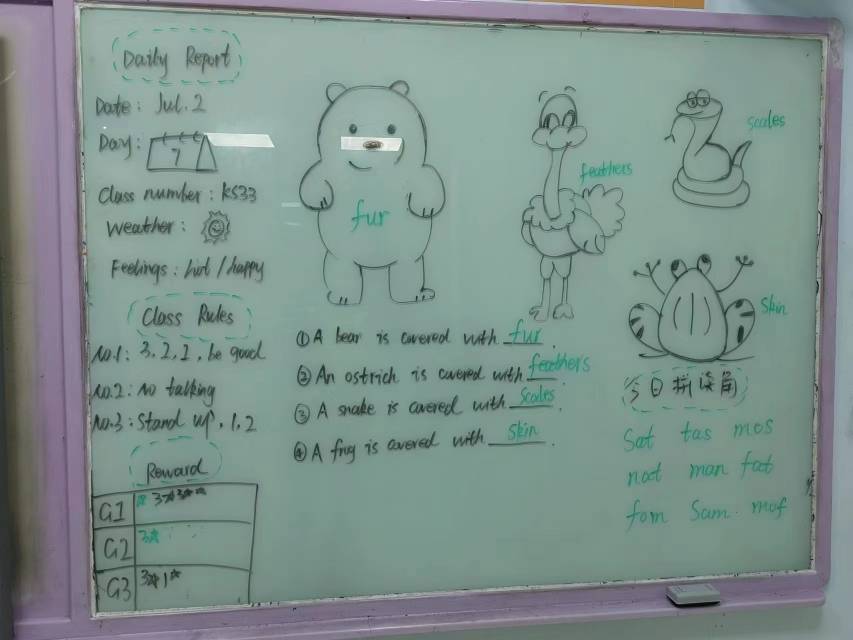 Daily Report
Date: Jul. 2
Day: 7
Class number: KS33
Weather:
Feelings: hot / happy
Class Rules
No.1: 3, 2, 1, be good
No.2: No talking
No.3: Stand up, 1, 2
Reward
G1 3
G2 3
G3 3 1
fur
feathers
scales
skin
① A bear is covered with fur.
② An ostrich is covered with feathers.
③ A snake is covered with scales.
④ A frog is covered with skin.
今日拼读角
Sat tas mos
nat man fat
fom Sam mof